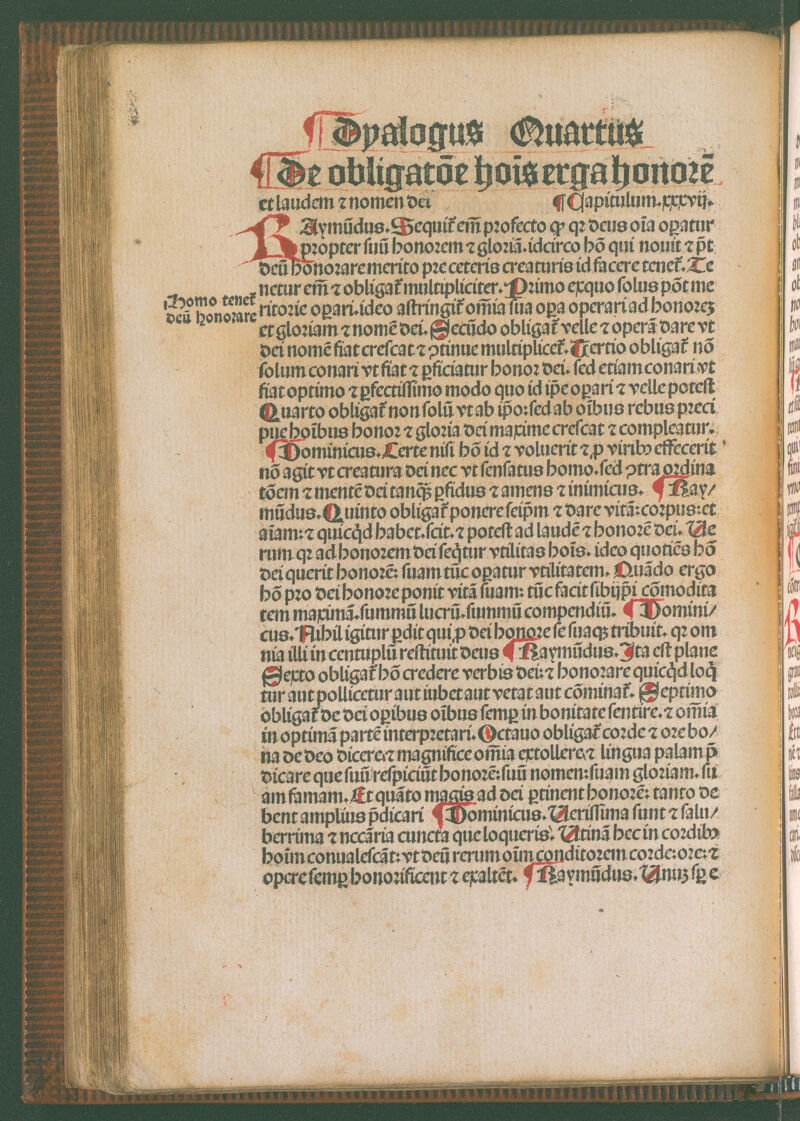 ¶ Dyalogus Quartus
¶ De obligatõe hoĩs erga honorẽ
et laudem ⁊ nomen dei ¶ Capitulum.xxxvij.
RAymũdus. Sequit᷑ em̃ profecto ꝙ qꝛ deus oĩa oꝑatur
propter suũ honorem ⁊ gloriã. idcirco hõ qui nouit ⁊ põt
deũ honorare merito pre ceteris creaturis id facere tenet᷑. Te
netur em̃ ⁊ obligat᷑ multipliciter. Primo exquo solus põt me
Homo tenet᷑
deũ honorare
ritorie oꝑari. ideo astringit᷑ om̃ia sua oꝑa operari ad honoreꝫ
et gloriam ⁊ nomẽ dei. Secũdo obligat᷑ velle ⁊ operã dare vt
dei nomẽ fiat crescat ⁊ ↄtinue multiplicet᷑. Tertio obligat᷑ nõ
solum conari vt fiat ⁊ ꝑficiatur honor dei. sed etiam conari vt
fiat optimo ⁊ ꝑfectissimo modo quo id ip̃e oꝑari ⁊ velle potest
Quarto obligat᷑ non solũ vt ab ip̃o: sed ab oĩbus rebus preci
pue hoĩbus honor ⁊ gloria dei maxime crescat ⁊ compleatur.
¶ Dominicus. Certe nisi hõ id ⁊ voluerit ⁊ ꝓ viribꝰ effecerit
nõ agit vt creatura dei nec vt sensatus homo. sed ↄtra ordina
tõem ⁊ mentẽ dei tanqꝫ̃ ꝑfidus ⁊ amens ⁊ inimicus. ¶ Ray/
mũdus. Quinto obligat᷑ ponere seip̃m ⁊ dare vitã: corpus: et
aĩam: ⁊ quicq̇d habet. scit. ⁊ potest ad laudẽ ⁊ honorẽ dei. Ue
rum qꝛ ad honorem dei seq̇tur vtilitas hoĩs. ideo quotiẽs hõ
dei querit honorẽ: suam tũc oꝑatur vtilitatem. Quãdo ergo
hõ pro dei honore ponit vitã suam: tũc facit sibijp̃i cõmodita
tem maximã. summũ lucrũ. summũ compendiũ. ¶ Domini/
cus. Nihil igitur ꝑdit qui ꝓ dei honore se suaqꝫ tribuit. qꝛ om
nia illi in centuplũ restituit deus ¶ Raymũdus. Ita est plane
Sexto obligat᷑ hõ credere verbis dei: ⁊ honorare quicq̇d loq̇
tur aut pollicetur aut iubet aut vetat aut cõminat᷑. Septimo
obligat᷑ de dei oꝑibus oĩbus semꝑ in bonitate sentire. ⁊ om̃ia
in optimã partẽ interpretari. Octauo obligat᷑ corde ⁊ ore bo/
na de deo dicere: ⁊ magnifice om̃ia extollere: ⁊ lingua palam p̃
dicare que suũ respiciũt honorẽ: suũ nomen: suam gloriam. su
am famam. Et quãto magis ad dei ꝑtinent honorẽ: tanto de
bent amplius p̃dicari ¶ Dominicus. Uerissima sunt ⁊ salu/
berrima ⁊ nccãria cuncta que loqueris. Utinã hec in cordibꝰ
hoĩm conualescãt: vt deũ rerum oĩm conditorem corde: ore: ⁊
opere semꝑ honorificent ⁊ exaltẽt. ¶ Raymũdus. Unuꝫ sꝑ e